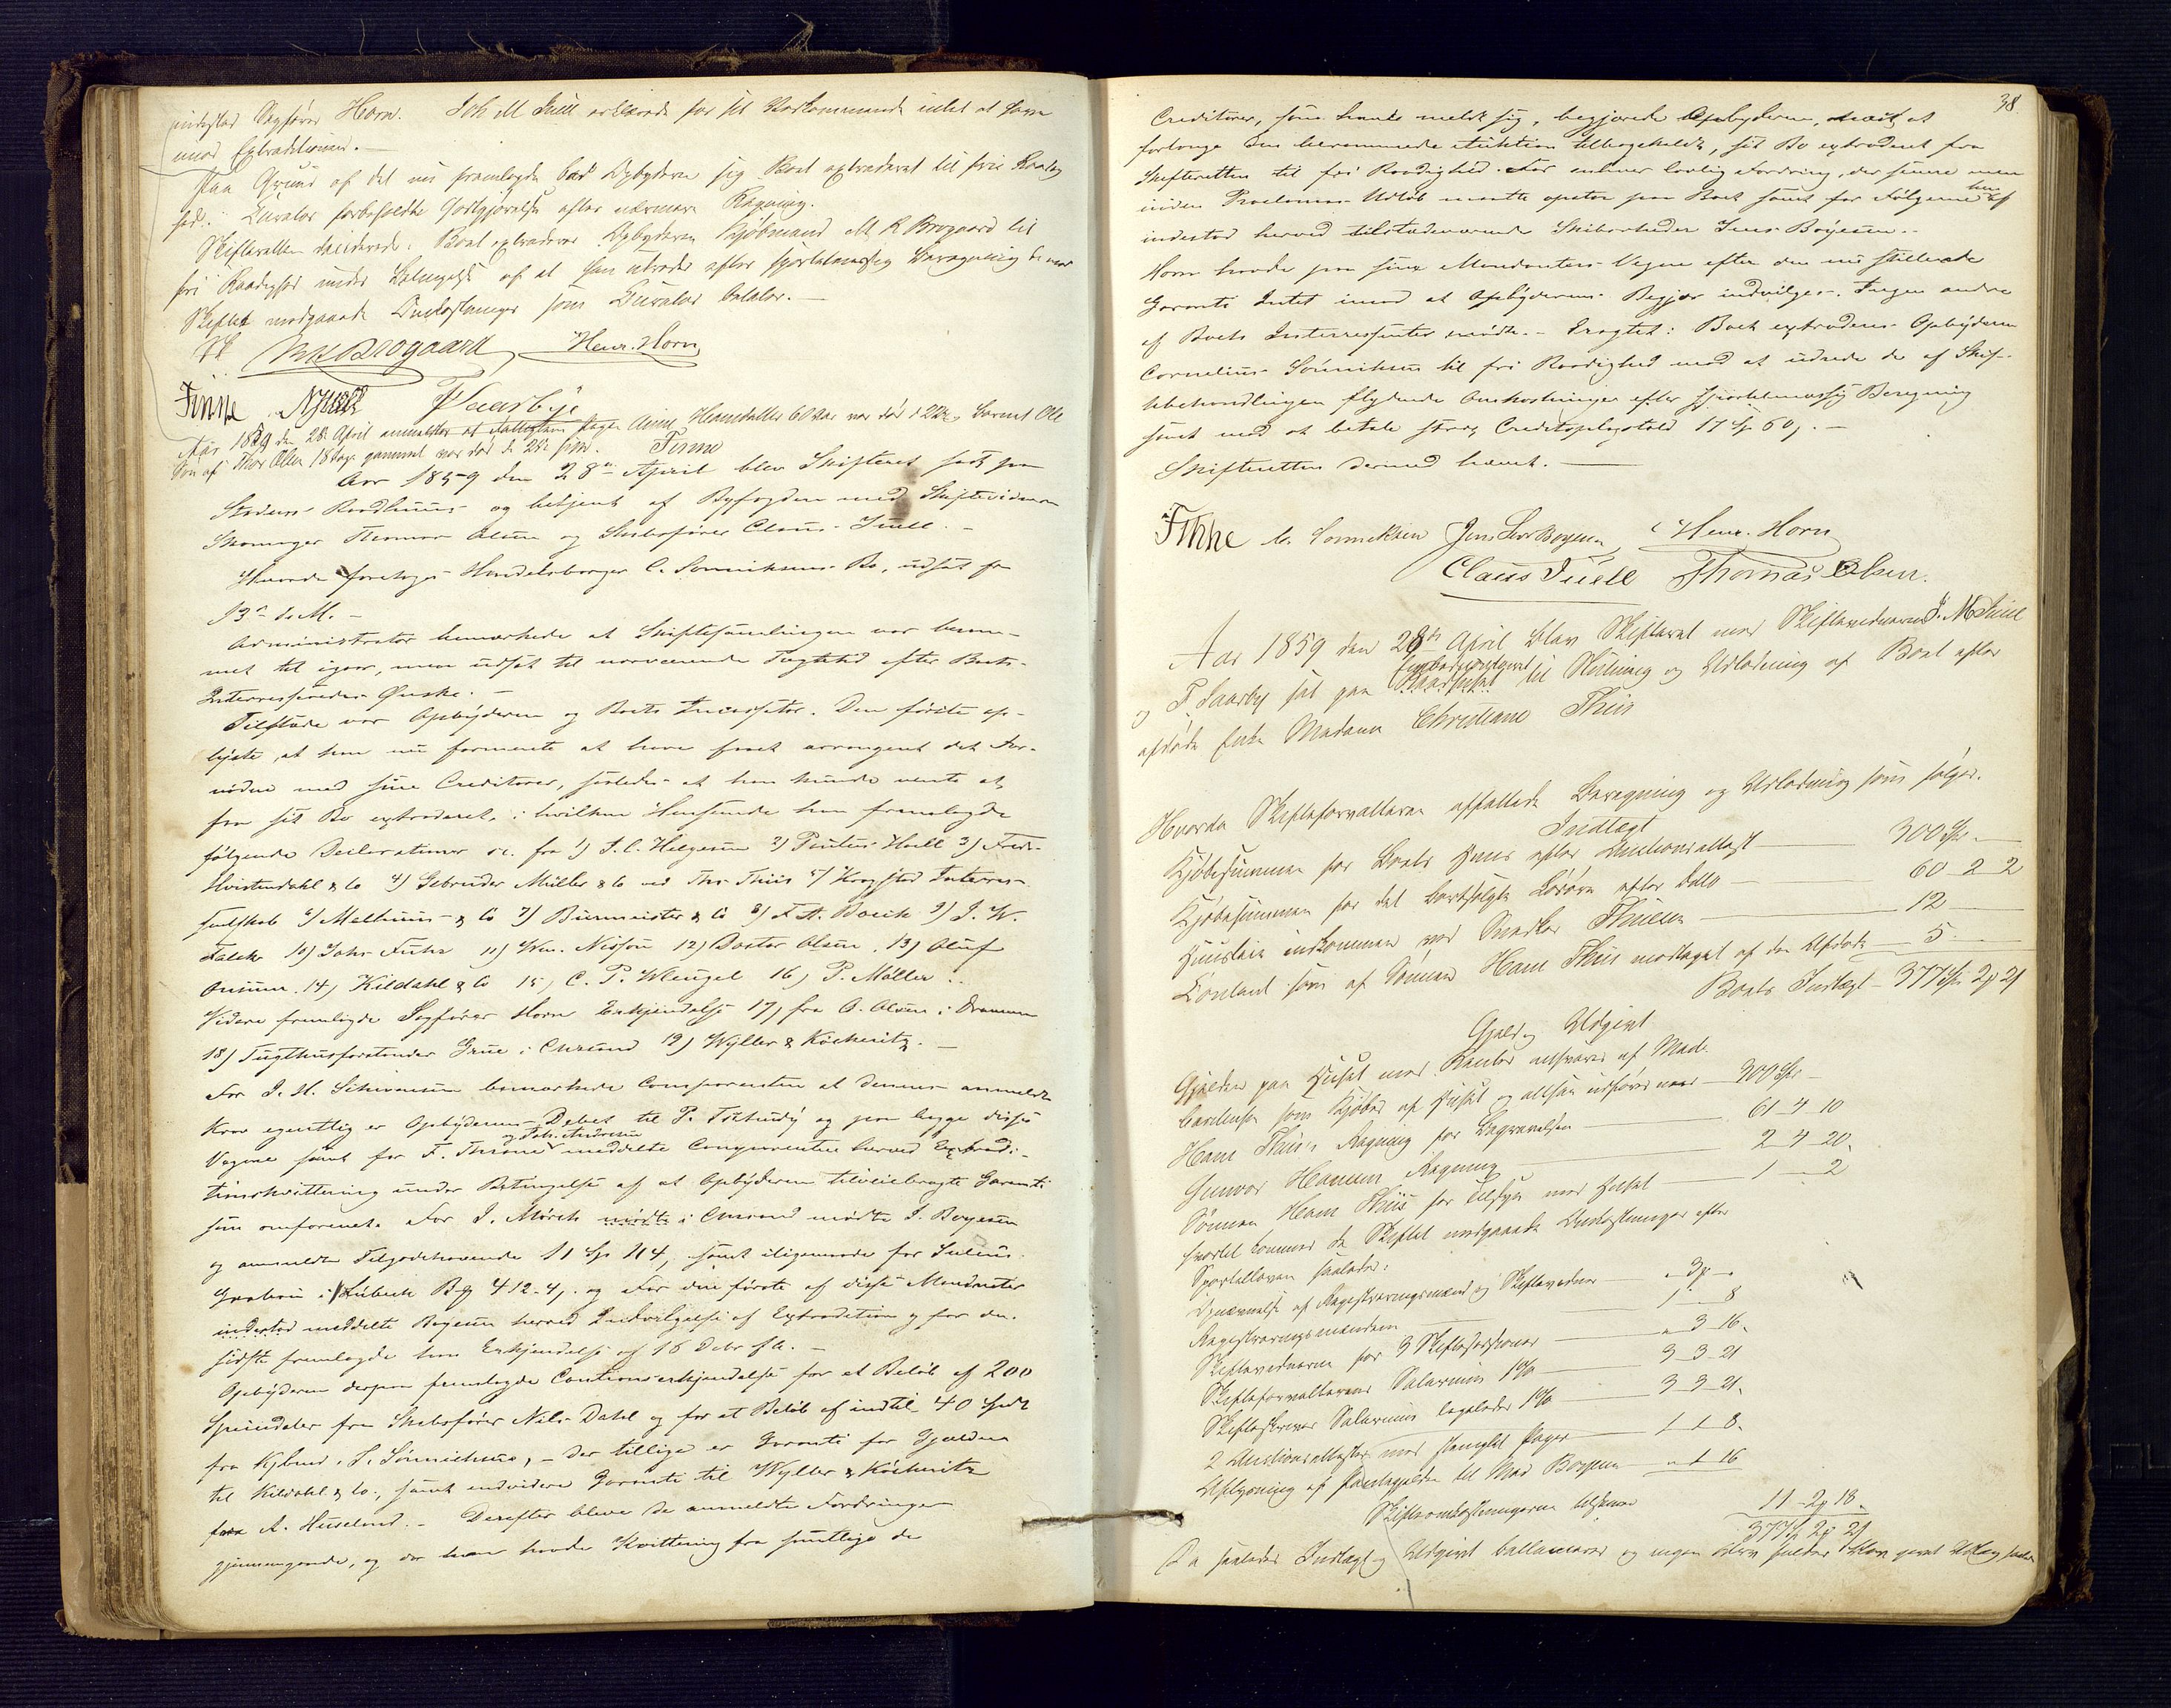 indestod Sagfører Horn. Joh M Juell erklærede for sit Vedkommende intet at have
imod Extraditionen.—
Paa Grund af det nu fremlagte bad Opbyderen sig Boet extraderet til fri Raadig-
hed. Curator forbeholdte Godtgjørelse efter nærmere Regning.
Skifteretten deciderede: Boet extraderes Opbyderen Kjøbmand M R Brogaard til
fri Raadighed under Betingelse af at han udreder efter sportelmæssig Beregning de ved
Skiftet medgaaede Omkostninger som Curator betaler.—
MRBrogaard Henr. Horn
Finne NJuell FSaarbye
Aar 1859 den 28 April anmeldtes at Pige Anne Hansdatter 60 Aar var død d 22de, Barnet Ole
Søn af Thor Olsen 18 Dage gammel var død d. 22de sidst. Finne
Aar 1859 den 28de April blev Skifteret sat paa
Stadens Raadhuus og betjent af Byfogden med Skiftevidnerne
Skomager Thomas Olsen og Skibsfører Claus Juell.—
Hvorda foretoges Handelsborger C. Sønniksens Bo, udsat fra
13de d. M.—
Administrator bemærkede at Skiftesamlingen var beram-
met til igaar, men udsat til nærværende Tægtetid efter Boets
Interesseredes Ønske.—
Tilstæde var Opbyderen og Boets Incassator. Den første op-
lyste, at han nu formente at have faaet arrangeret det For-
nødne med sine Creditorer, saaledes at han kunde vente at
faa sit Bo extraderet, i hvilken Henseende han fremlagde
følgende Declarationer sc. fra 1) S. C. Helgesen 2) Pintus Hall 3) Fred.
Hvistendahl & Co 4) Gebruder Müller & Co ved Ths Thiis 5) Kragstad Interes-
sentskab 6) Mathiius & Co 7) Burmeister & Co 8) F. A. Boeck 9) J. W.
Falck 10) Johs Fuhr 11) Wm. Nisson 12) Doctor Olsen. 13) Oluf
Onsum. 14) Kildahl & Co 15) C. P. Wengel 16) P. Møller.
Videre fremlagde Sagfører Horn Erkjendelse 17) fra O. Olsen i Drammen
18) Tugthusforstander Grue i Chrsand 19) Wyller & Köcheritz.—
For J. H. Schwensen bemærkede Comparenten at dennes anmeldte
Krav egentlig er Opbyderens Debet til P. Tschudy og paa begge disses
og Joh. Andresen
Vegne samt for F. Throne meddelte Comparenten herved Extradi-
tionskvittering under Betingelse af at Opbyderen tilveiebragte Garanti
som omformelt. For J. Mørch mødte i Chrsand mødte J. Boyesen
og anmeldte Tilgodehavende 11 Sp 114, samt iligemaade for Julius
Grabau i Lübeck B 412.4. og For den første af disse Mandanter
indestod meddelte Boyesen herved Indvilgelse af Extradition og for den
sidste fremlagde han Erkjendelse af 16 Debr f.A.—
Opbyderen derpaa fremlagde Cautionserkjendelse for et Beløb af 200
Speciedaler fra Skibsfører Nils Dahl og for et Beløb af indtil 40 Spd
fra Kjbmd. S. Sønnichsen,— der tillige er Garanti for Gjælden
til Kildahl & Co., samt endvidere Garanti til Wyller & Köcheritz
fra A. Huselund.— Derefter bleve de anmeldte Fordringer
gjennemgaaede, og da man havde Kvittering fra samtlige de
38.
Creditorer, som havde meldt sig, begjærede Opbyderen, med at
forlange den berammede Auktion tilbageholdt, sit Bo extraderet fra
Skifteretten til fri Raadighed. For enhver lovlig Fordring, der senere maa
inden Proclamas Udløb maatte opstaa paa Boet samt for Følgerne her af
indestod herved tilstædeværende Skibsreder Jens Boyesen.—
Horn havde paa sine Mandanters Vegne efter den nu stillede
Garanti Intet imod at Opbyderens Begjær indvilges. Ingen andre
af Boets Interessenter mødte.— Eragtet: Boet extraderes Opbyderen
Cornelius Sønniksen til fri Raadighed mod at udrede de af Skif-
tebehandlingen flydende Omkostninger efter sportelmæssig Beregning
samt mod at betale strax Creditoplagstold 17 Sp 60 ß.—
Skifteretten dermed hævet.—
Finne C. Sonniksen Jens Boyesen Henr. Horn
Claus Juell Thomas Olsen.
Aar 1859 den 28de April blev Skifteret med Skiftevidnerne J. M Juell
og F Saarby sat paa Embedscontoret til Slutning og Udlodning af Boet efter
afdøde Enke Madame Christiane Thiis
Hvorda Skifteforvalteren affattede Beregning og Udlodning som følger.
Indtægt
Kjøbesummen for Boets Huus efter Auctionsattest — 300 Sp. —
Kjøbesummen for det bortsolgte Løsøre efter Ditto — 60 2 2
Huusleie indkommen ved Snedker Thiesen — 12 —
Contant som af Sønnen Hans Thiis modtaget af den Afdøde — 5 —
Boets Indtægt — 377 Sp 2 ß 2
Gjæld og Udgivt
Gjælden paa Huset med Renter ansvares af Mad.
Carlsen som Kjøber af Huset og altsaa udføres med — 300 Sp —
Hans Thiis's Regning for Begravelsen — 61 4 10
Gunvor Hansens Regning — 2 4 20.
Sønnen Hans Thiis for Tilsyn med Huset — 1 — 2
Hvortil kommer de Skiftet medgaaede Omkostninger efter
Sportelloven saaledes:
Opnævnelse af Registreringsmænd og Skiftevidner — " 3 ß "
Registreringsmændene — 1 — 8
Skiftevidnerne for 3 Skiftesessioner — " 3 16.
Skifteforvalterens Salarium 1% — 3 3 21
Skifteskriver Salarium ligeledes 1% — 3 3 21.
2 Auctionsattester med stemplet Papir — 1 1 8.
Aflysning af Panteguelden til Mad Boysen — " 1 16
Skifteomkostningerne tilsammen 11 2 ß 18.
377 Sp 2 ß 2
Da saaledes Indtægt og Udgivt ballancerer og ingen